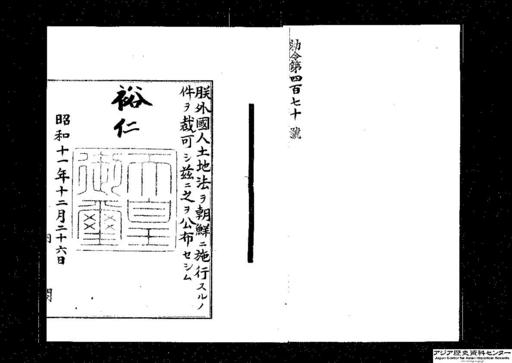 勅令第四百七十號
朕外國人土地法ヲ朝鮮ニ施行スルノ
件ヲ裁可シ茲ニ之ヲ公布セシム
裕仁
天皇
御璽
昭和十一年十二月二十六日
アジア歴史資料センター
Japan Center for Asian Historical Records